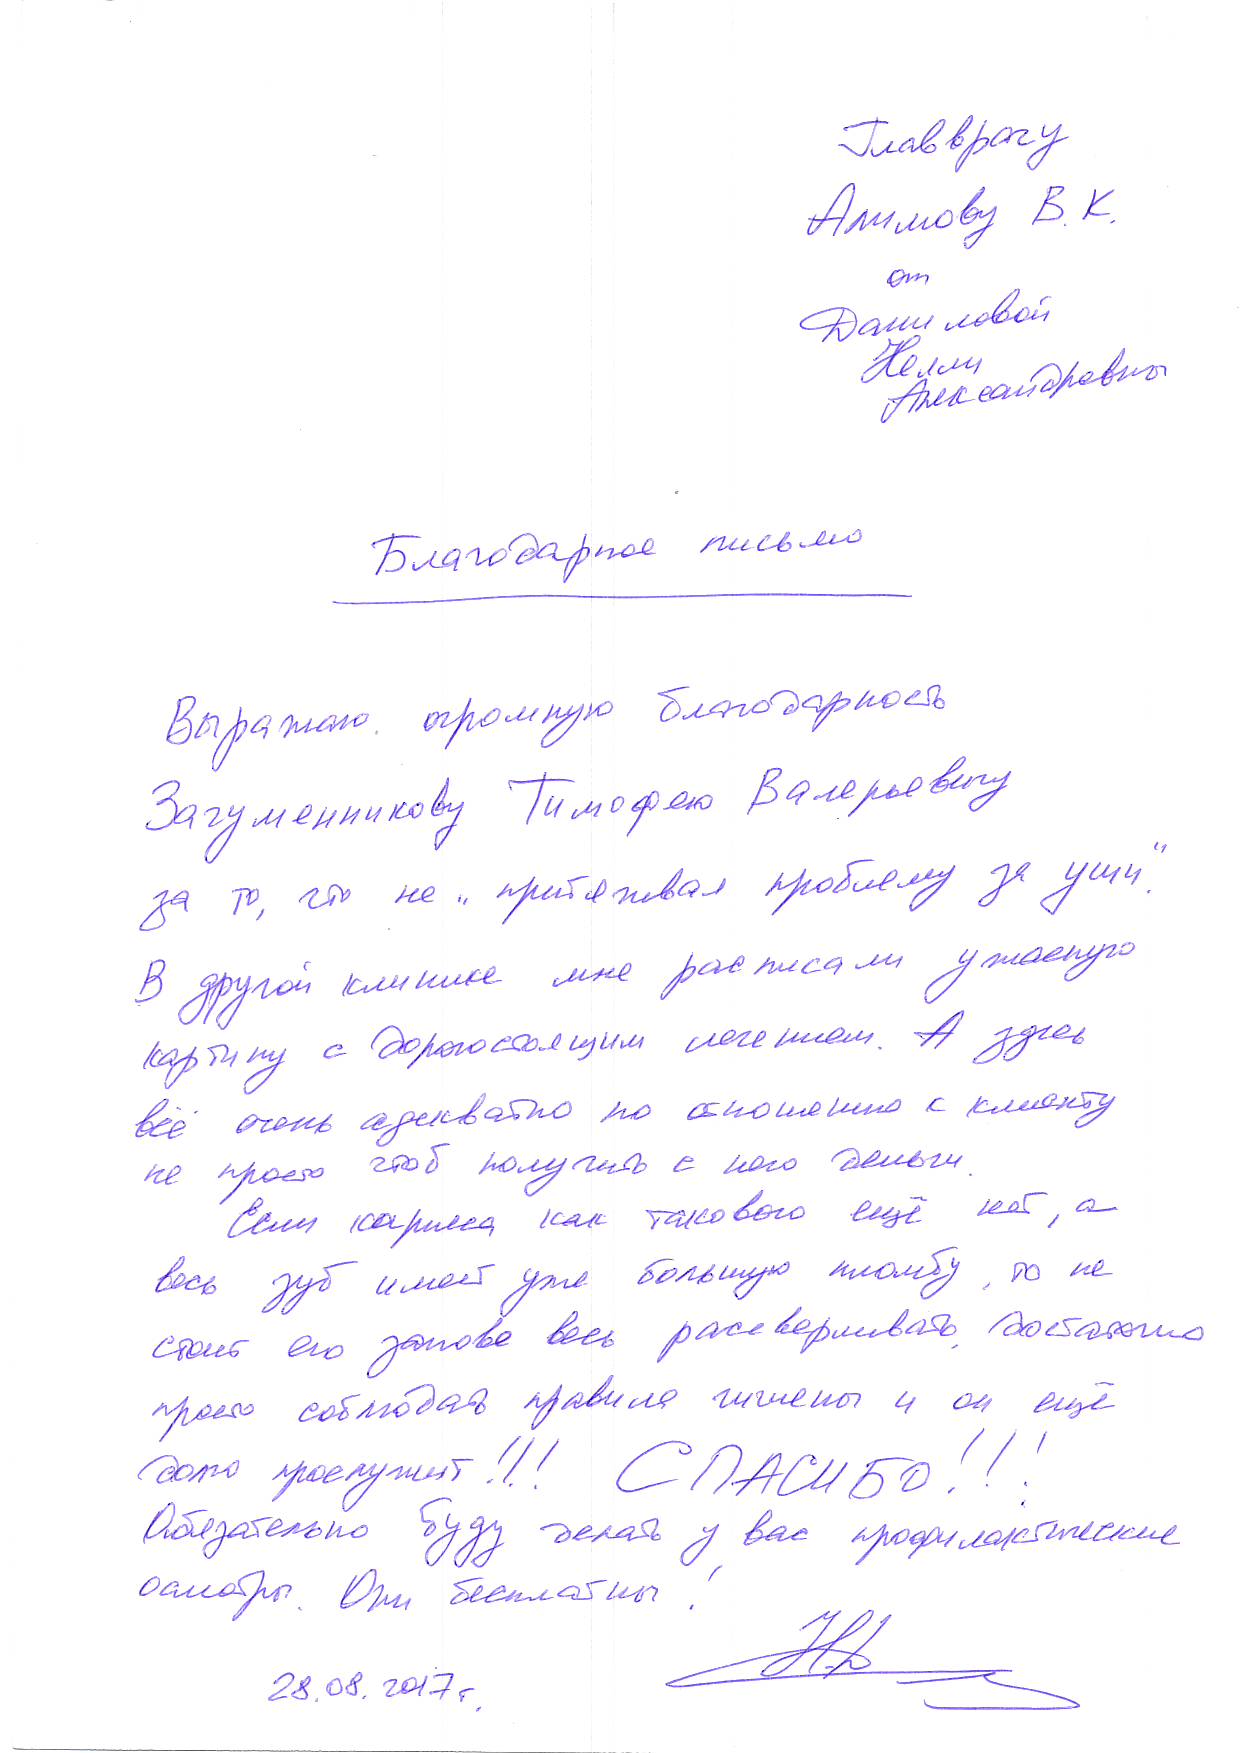 Главврачу
Алимову В.К.
от
Даниловой
Нелли
Александровны
Благодарное письмо
Выражаю огромную благодарность
Загуменникову Тимофею Валерьевичу
за то, что не „притягивал проблему за уши".
В другой клинике мне расписали ужасную
картину с дорогостоящим лечением. А здесь
всё очень адекватно по отношению к клиенту
не просто чтоб получить с него деньги.
Если кариеса как такового ещё нет, а
весь зуб имеет уже большую пломбу, то не
стоит его заново весь рассверливать, достаточно
просто соблюдать правила гигиены и он ещё
долго прослужит!!! СПАСИБО!!!
Обязательно буду делать у вас профилактические
осмотры. Они бесплатны!
Н.Д
28.08.2017г.